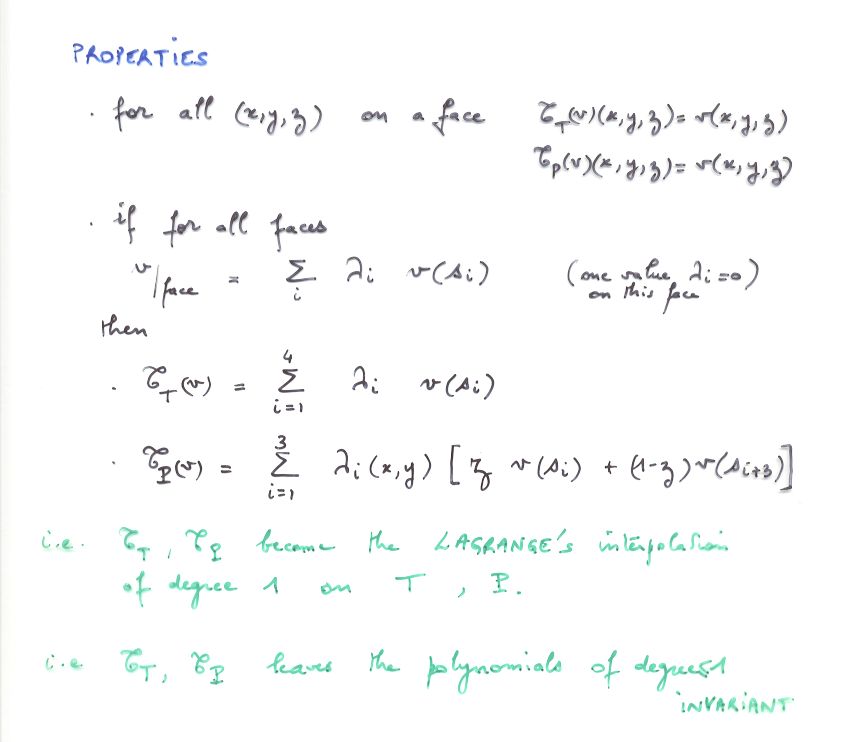 PROPERTIES
. for all (x,y,z) on a face 𝒞_T(v)(x,y,z) = v(x,y,z)
𝒞_P(v)(x,y,z) = v(x,y,z)
. if for all faces
v/face = Σ_i λi v(si) (one value λi=0)
on this face
then
. 𝒞_T(v) = Σ_{i=1}^{4} λi v(si)
. 𝒞_P(v) = Σ_{i=1}^{3} λi(x,y) [z v(si) + (1-z)v(si+3)]
i.e. 𝒞_T, 𝒞_P become the LAGRANGE's interpolation
of degree 1 on T, P.
i.e 𝒞_T, 𝒞_P leaves the polynomials of degree≤1
INVARIANT